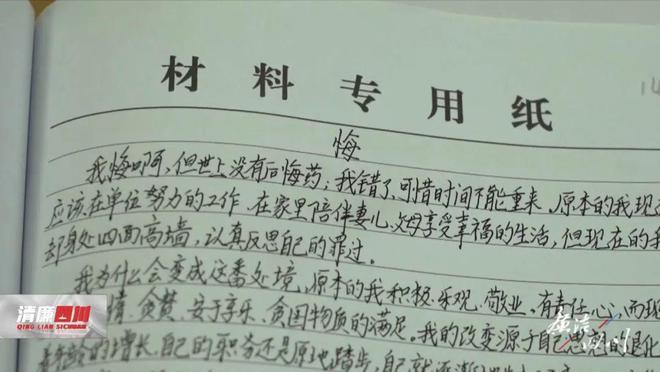 材料专用纸
14
悔
我悔啊,但世上没有后悔药;我错了,可惜时间不能重来。原本的我现
应该在单位努力的工作,在家里陪伴妻儿、父母享受幸福的生活,但现在的我
却身处四面高墙,认真反思自己的罪过。
我为什么会变成这番处境,原本的我积极、乐观、敬业、有责任心,而现
情、贪婪、安于享乐、贪图物质的满足。我的改变源于自己思想的退化
年龄的增长,自己的职务还是原地踏步,自己就逐渐
清廉四川
QING LIAN SICHUAN